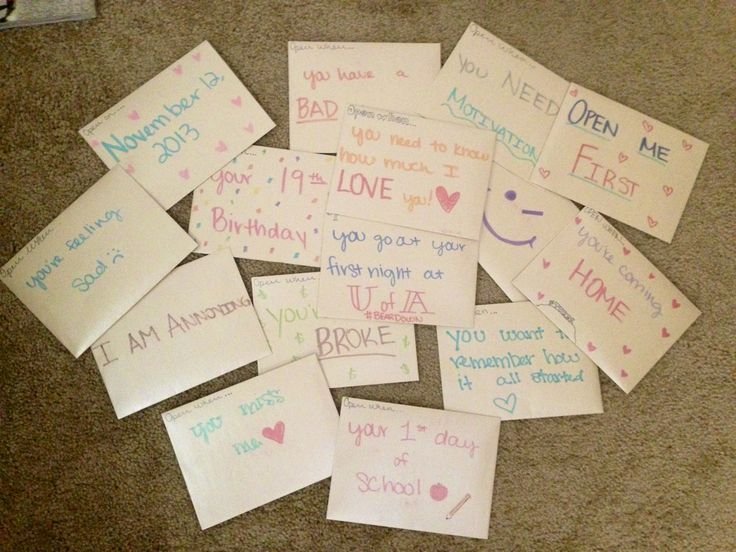 Open on...
November 12,
2013
Open when...
you have a
BAD
Open when...
You NEED
MOTIVATION
OPEN ME
FIRST
Open when...
you need to know
how much I
LOVE ya!
your 19th
Birthday
Open when
you're feeling
sad
you go at your
first night at
U of A
#BEARDOWN
Open when...
you're coming
HOME
I AM ANNOYING
Open when
You're
BROKE
You want to
remember how
it all started
Open when...
you miss
me
Open when...
your 1st day
of
school